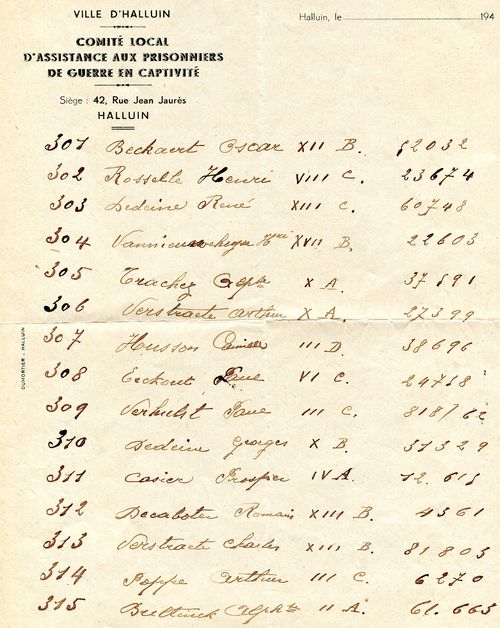 VILLE D'HALLUIN
Halluin, le 194
COMITÉ LOCAL
D'ASSISTANCE AUX PRISONNIERS
DE GUERRE EN CAPTIVITÉ
Siège : 42, Rue Jean Jaurès
HALLUIN
301 Beckaert Oscar XII B. 52032
302 Rosselle Henri VIII C. 23674
303 Dedeine René XIII C. 60748
304 XVII B. 22603
305 Trachez Alph X A. 37591
306 Verstraete Arthur X A. 27399
307 Husson Camille III D. 38696
308 Eeckout VI C. 24758
309 Verhulst III C.
310 Dedeine Georges X B. 31329
311 Casier Prosper IV A. 12.615
312 Decabooter Romain XIII B. 4361
313 Verstraete Charles XIII B. 81803
314 Poppe Arthur III C. 6270
315 II A. 61.663
DUMORTIER - HALLUIN